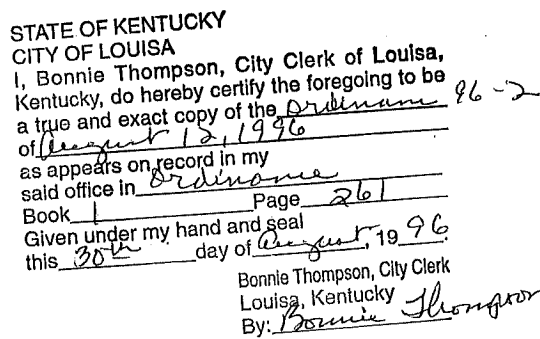 STATE OF KENTUCKY
CITY OF LOUISA
I, Bonnie Thompson, City Clerk of Louisa,
Kentucky, do hereby certify the foregoing to be
a true and exact copy of the Ordinance 96-2
of August 12, 1996
as appears on record in my
said office in Ordinance
Book 1 Page 261
Given under my hand and seal
this 30th day of August, 1996.
Bonnie Thompson, City Clerk
Louisa, Kentucky
By: Bonnie Thompson